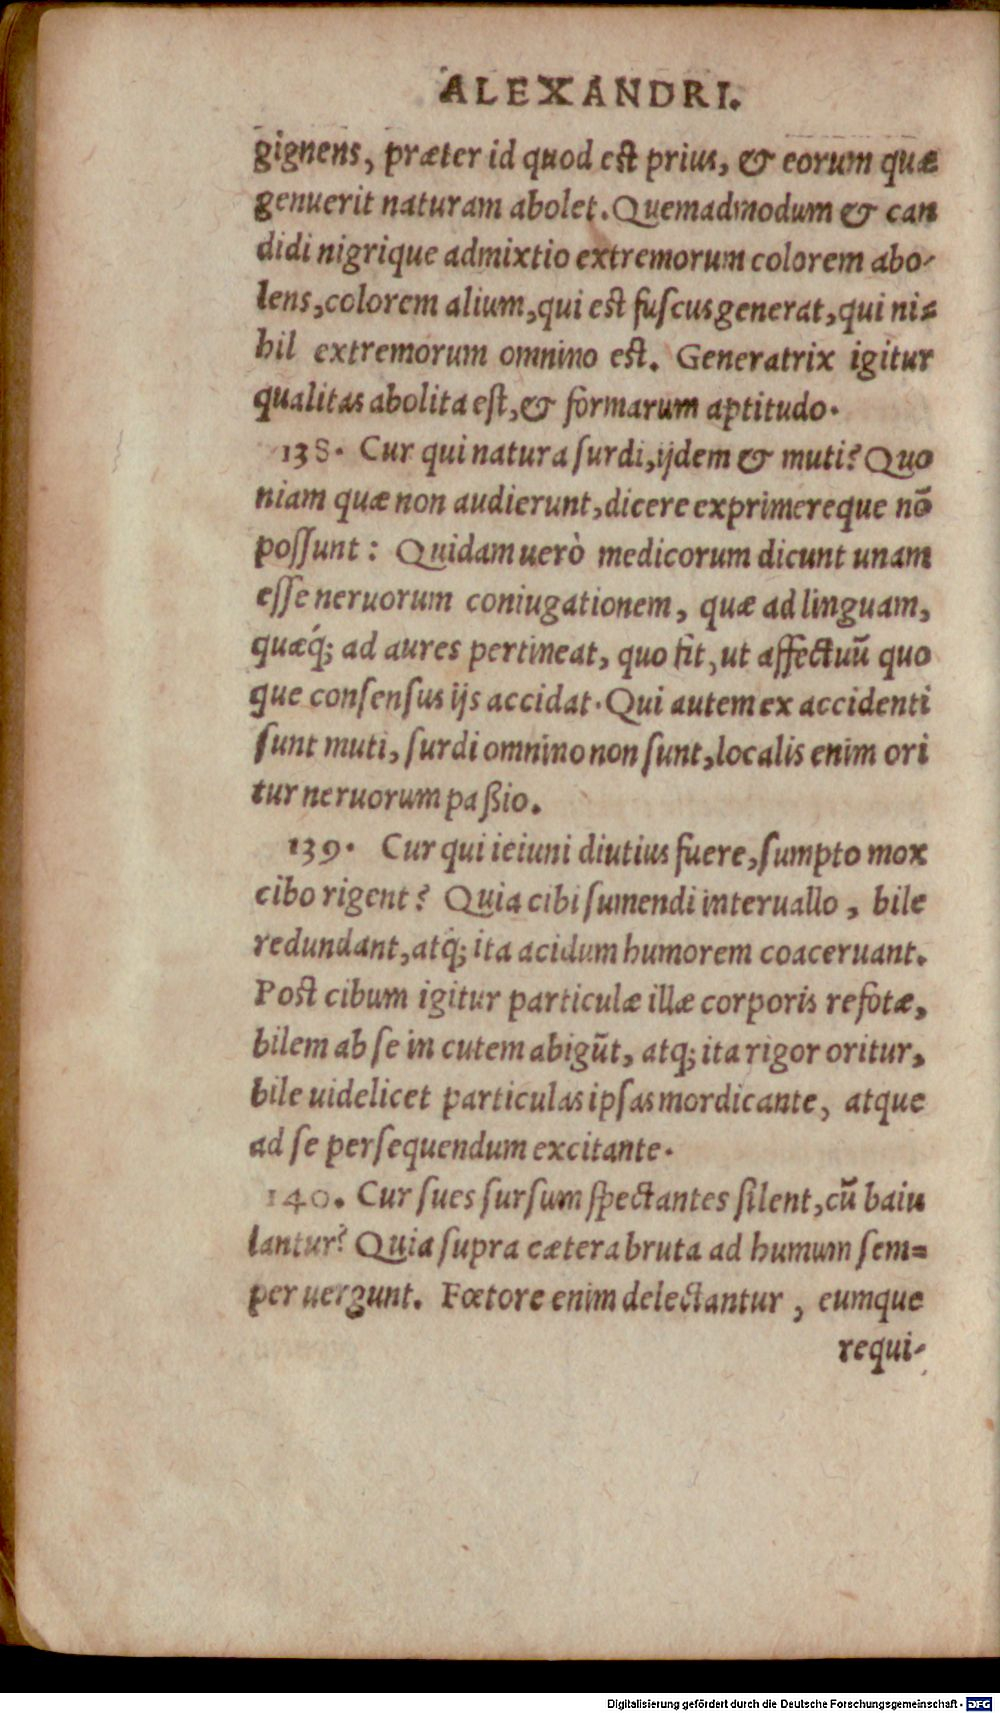 ALEXANDRI.
gignens, præter id quod est prius, & eorum quæ
genuerit naturam abolet. Quemadmodum & can
didi nigrique admixtio extremorum colorem abo-
lens, colorem alium, qui est fuscus generat, qui ni=
hil extremorum omnino est. Generatrix igitur
qualitas abolita est, & formarum aptitudo.
138. Cur qui natura surdi, ijdem & muti? Quo
niam quæ non audierunt, dicere exprimereque nō
possunt: Quidam uerò medicorum dicunt unam
esse neruorum coniugationem, quæ ad linguam,
quæq́; ad aures pertineat, quo fit, ut affectuū quo
que consensus ijs accidat. Qui autem ex accidenti
sunt muti, surdi omnino non sunt, localis enim ori
tur neruorum paßio.
139. Cur qui ieiuni diutius fuere, sumpto mox
cibo rigent? Quia cibi sumendi interuallo, bile
redundant, atq; ita acidum humorem coaceruant.
Post cibum igitur particulæ illæ corporis refotæ,
bilem ab se in cutem abigūt, atq; ita rigor oritur,
bile uidelicet particulas ipsas mordicante, atque
ad se persequendum excitante.
140. Cur sues sursum spectantes silent, cū baiu
lantur? Quia supra cætera bruta ad humum sem=
per uergunt. Fœtore enim delectantur, eumque
requi-
Digitalisierung gefördert durch die Deutsche Forschungsgemeinschaft - DFG